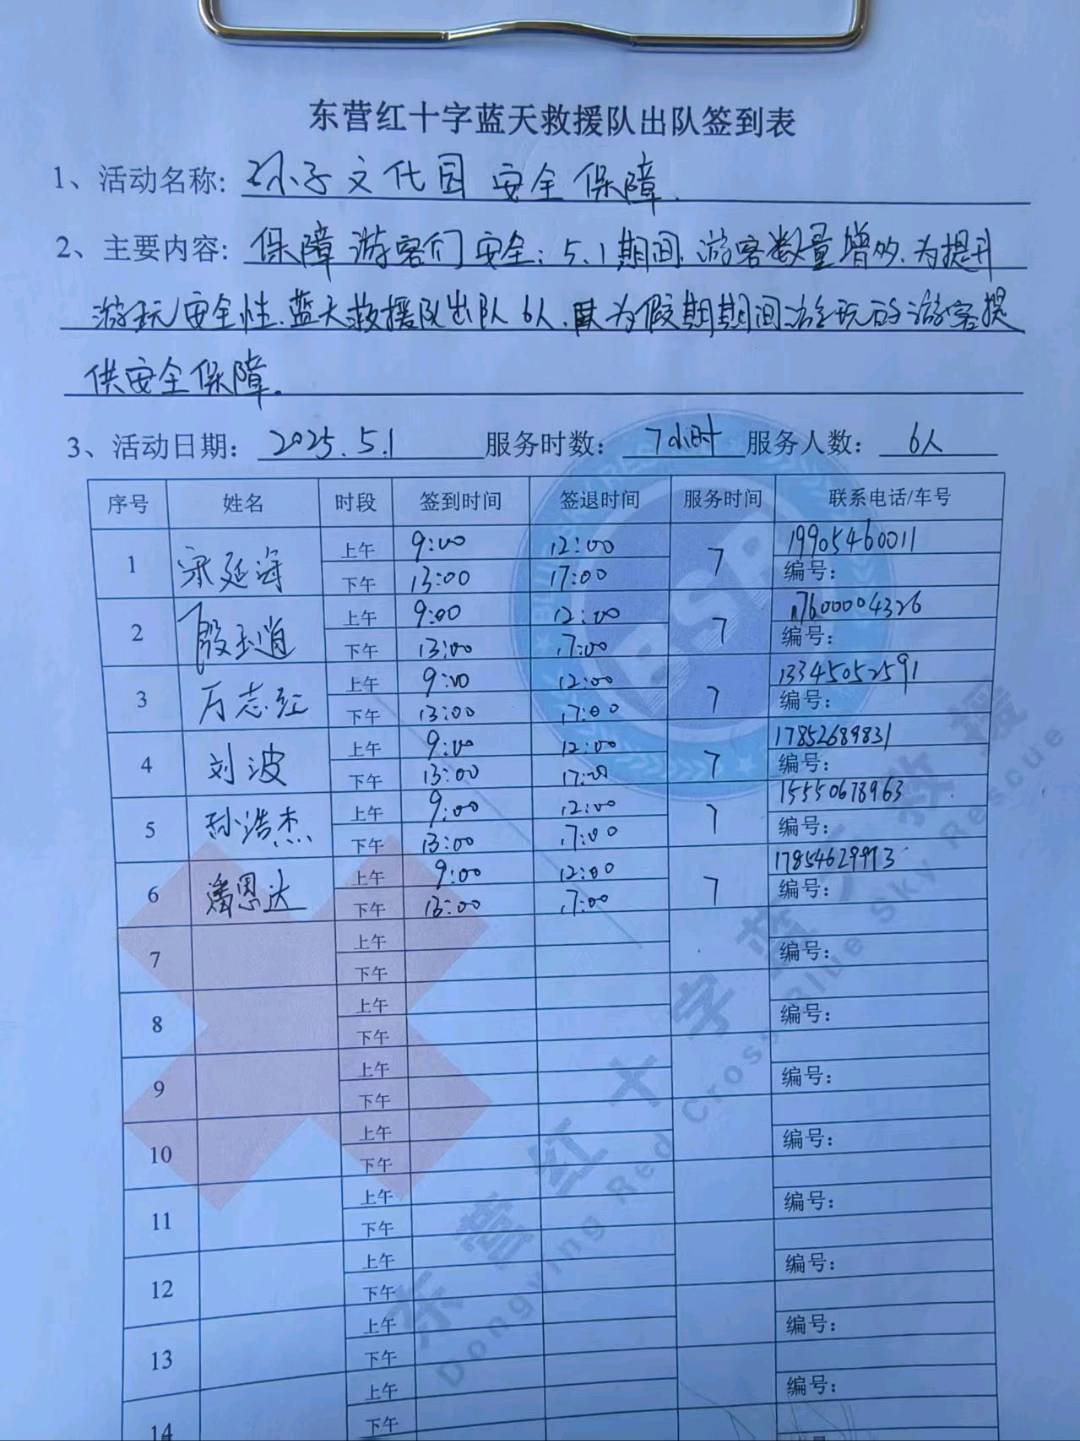 东营红十字蓝天救援队出队签到表
1、活动名称: 孙子文化园 安全保障.
2、主要内容: 保障游客们安全; 5.1期间, 游客数量增多. 为提升
游玩安全性. 蓝天救援队出队6人. 为假期期间游玩的游客提
供安全保障.
3、活动日期: 2025.5.1 服务时数: 7小时 服务人数: 6人
序号 姓名 时段 签到时间 签退时间 服务时间 联系电话/车号
1 宋延海 上午 9:00 12:00 7 19905460011
下午 13:00 17:00 编号:
2 殷玉道 上午 9:00 12:00 7 17600004326
下午 13:00 17:00 编号:
3 万志红 上午 9:00 12:00 7 13345052591
下午 13:00 17:00 编号:
4 刘波 上午 9:00 12:00 7 17852689831
下午 13:00 17:00 编号:
5 孙浩杰 上午 9:00 12:00 7 15550678963
下午 13:00 17:00 编号:
6 潘恩达 上午 9:00 12:00 7 17854629993
下午 13:00 17:00 编号:
7 上午
下午 编号:
8 上午
下午 编号:
9 上午
下午 编号:
10 上午
下午 编号:
11 上午
下午 编号:
12 上午
下午 编号:
13 上午
下午 编号:
14 上午
下午 编号:
BSR
东营红十字蓝天救援
Dongying Red Cross Blue Sky Rescue